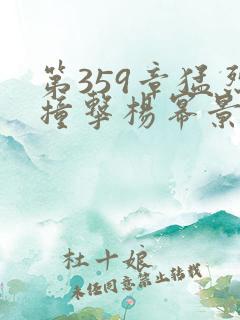 第359章猛烈
撞擊楊幂景
杜十娘
未经同意禁止转载